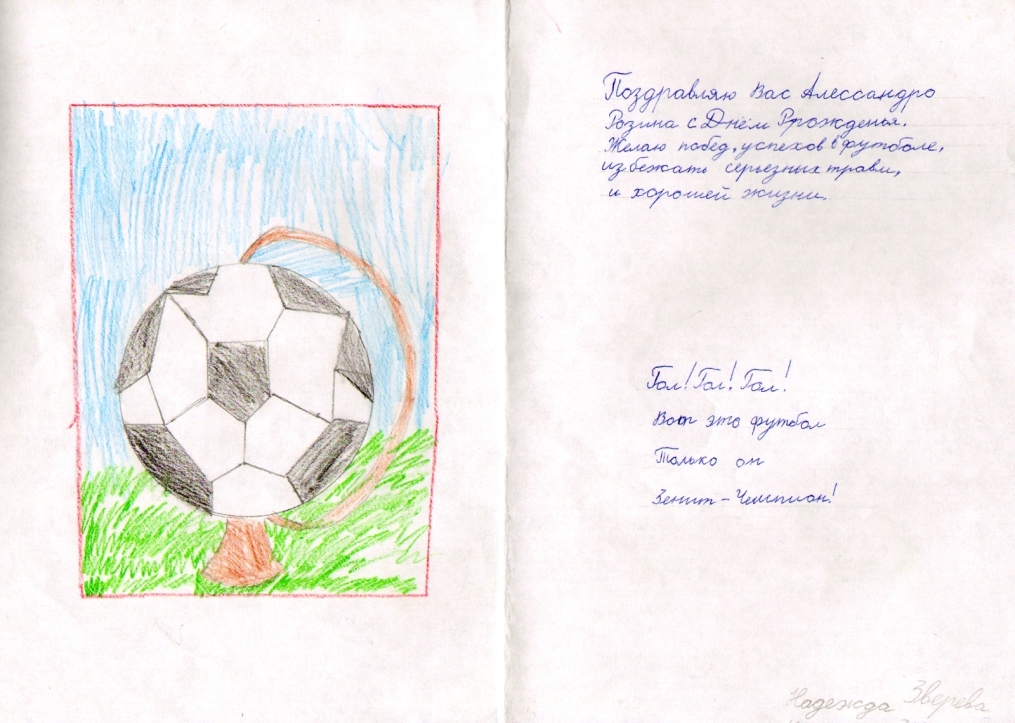 Поздравляю Вас Алессандро
Розина с Днём Ррожденья.
Желаю побед, успехов в футболе,
избежать серьезных травм,
и хорошей жизни.
Гол! Гол! Гол!
Вот это футбол
Только он
Зенит - Чемпион!
Надежда Зверева